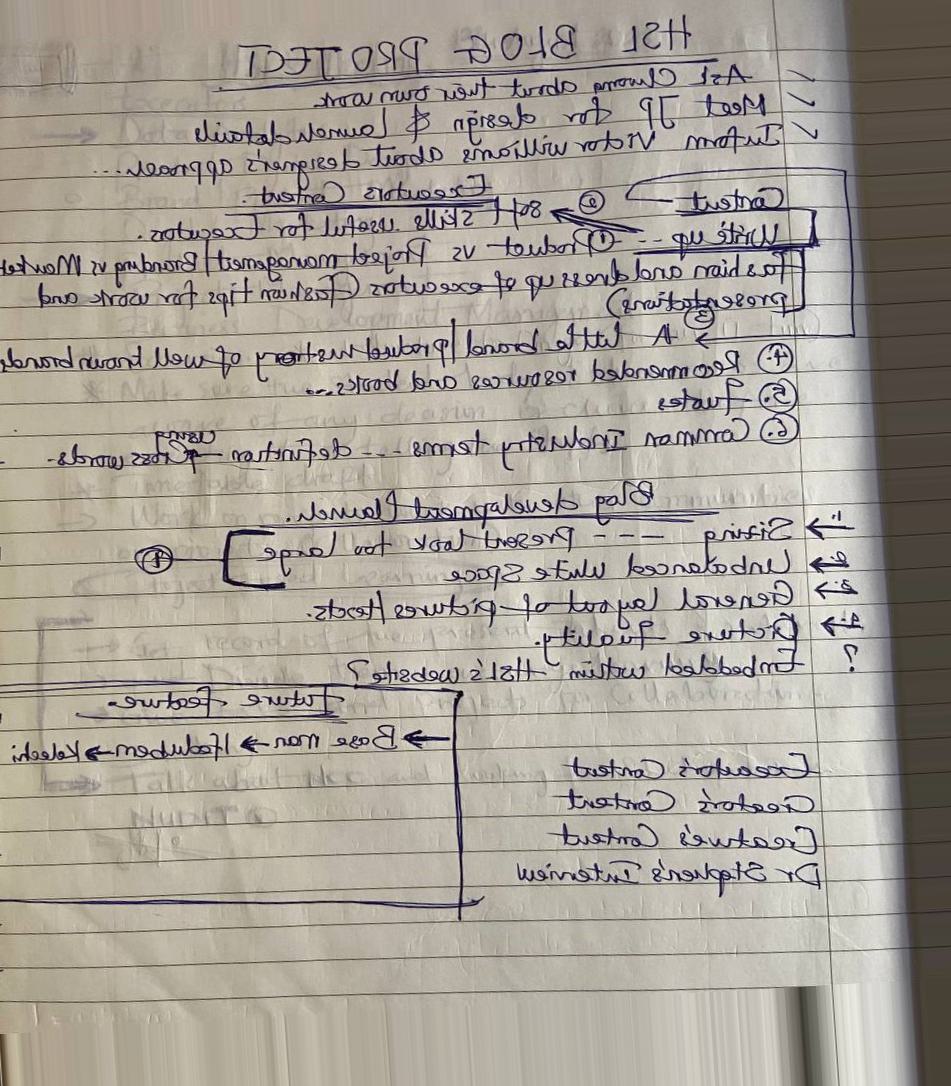 HSI BLOG PROJECT
✓ Ask Chioma about their own work
✓ Meet JP for design & Funnel details
✓ Inform Victor Williams about designer's approach...
Executors Content.
Content → ② Soft skills useful for Executor.
Write up -- ① Product vs Project management/Branding vs Market
Fashion and dress up of executors (Fashion tips for work and
presentations)
③ A little brand/product history of well known brands
④ Recommended resources and books...
⑤ Quotes
⑥ Common Industry terms -- definition Cross words.
Blog development Funnel.
1. → Sizing --- Present look too large
2. → Unbalanced White Space
3. → General layout of pictures/texts.
4. → Picture Quality.
? Embedded within HSI's website?
Future Feature
→ Base Now → → Kelechi
Executor's Content
Creator's Content
Creature's Content
Dr Stephen's Interview